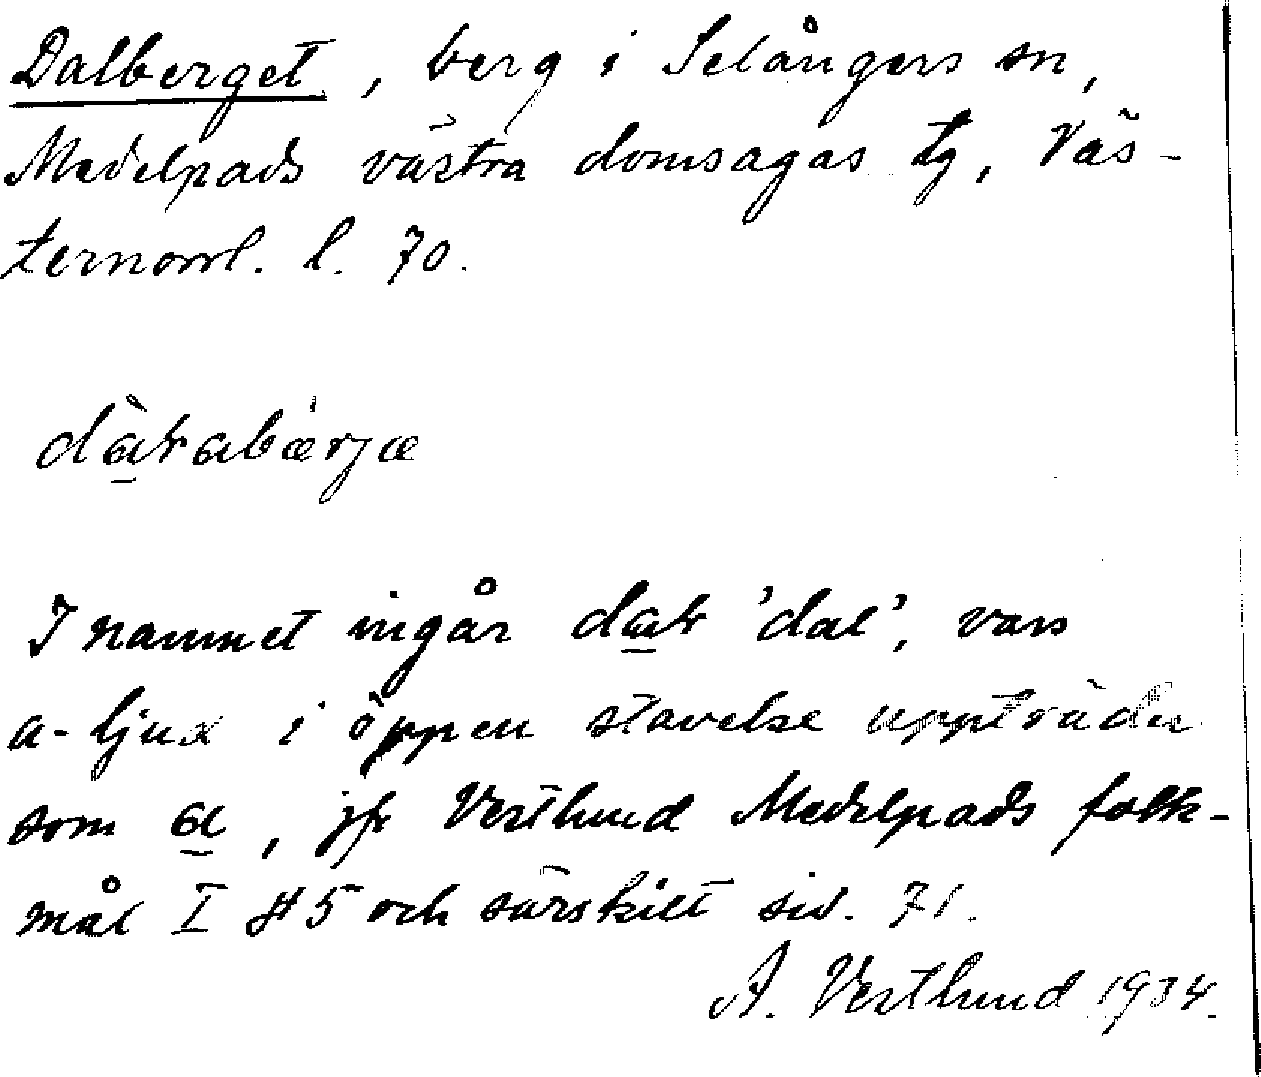 Dalberget, berg i Selångers sn,
Medelpads västra domsagas tg, Väs-
ternorrl. l. 70.
dàɽabær̀jæ
I namnet ingår daɽ 'dal', vars
a-ljud i öppen stavelse uppträder
som a, jfr Vestlund Medelpads folk-
mål I § 5 och särskilt sid. 71.
A. Vestlund 1934.